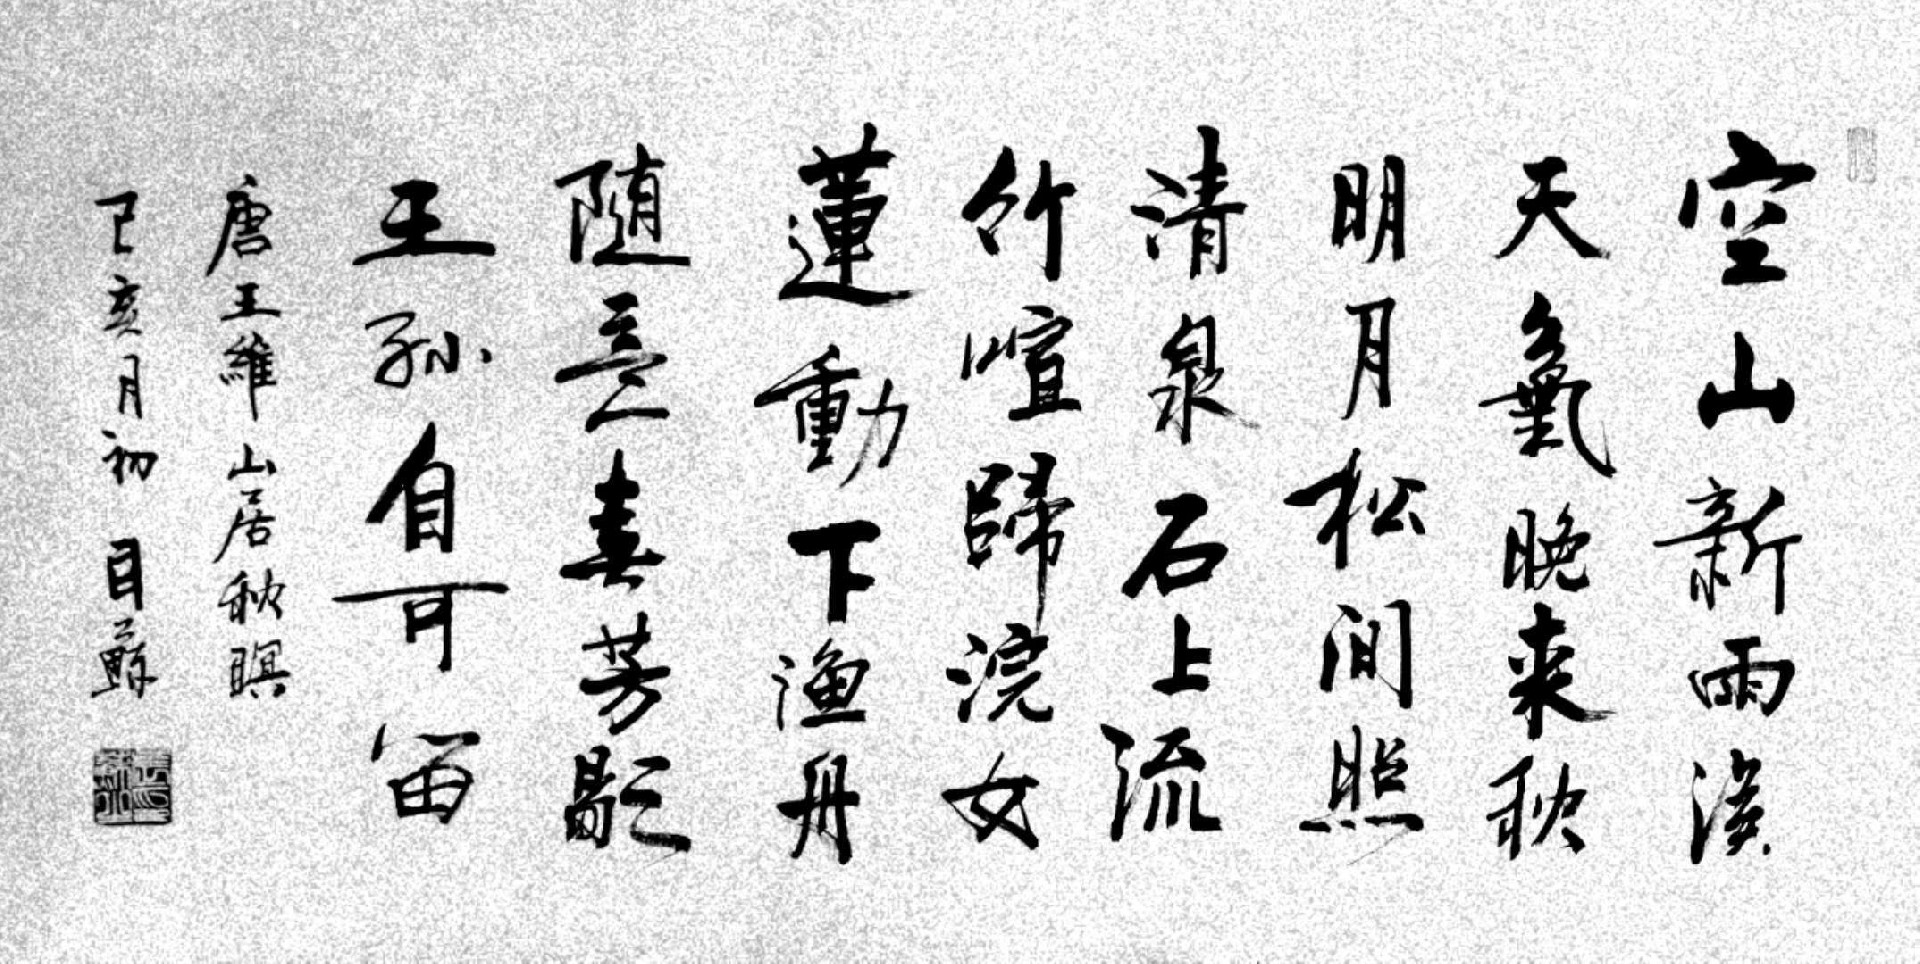 空山新雨後
天氣晚来秋
明月松间照
清泉石上流
竹喧歸浣女
蓮動下渔舟
随意春芳歇
王孙自可留
唐王維山居秋暝
己亥月初